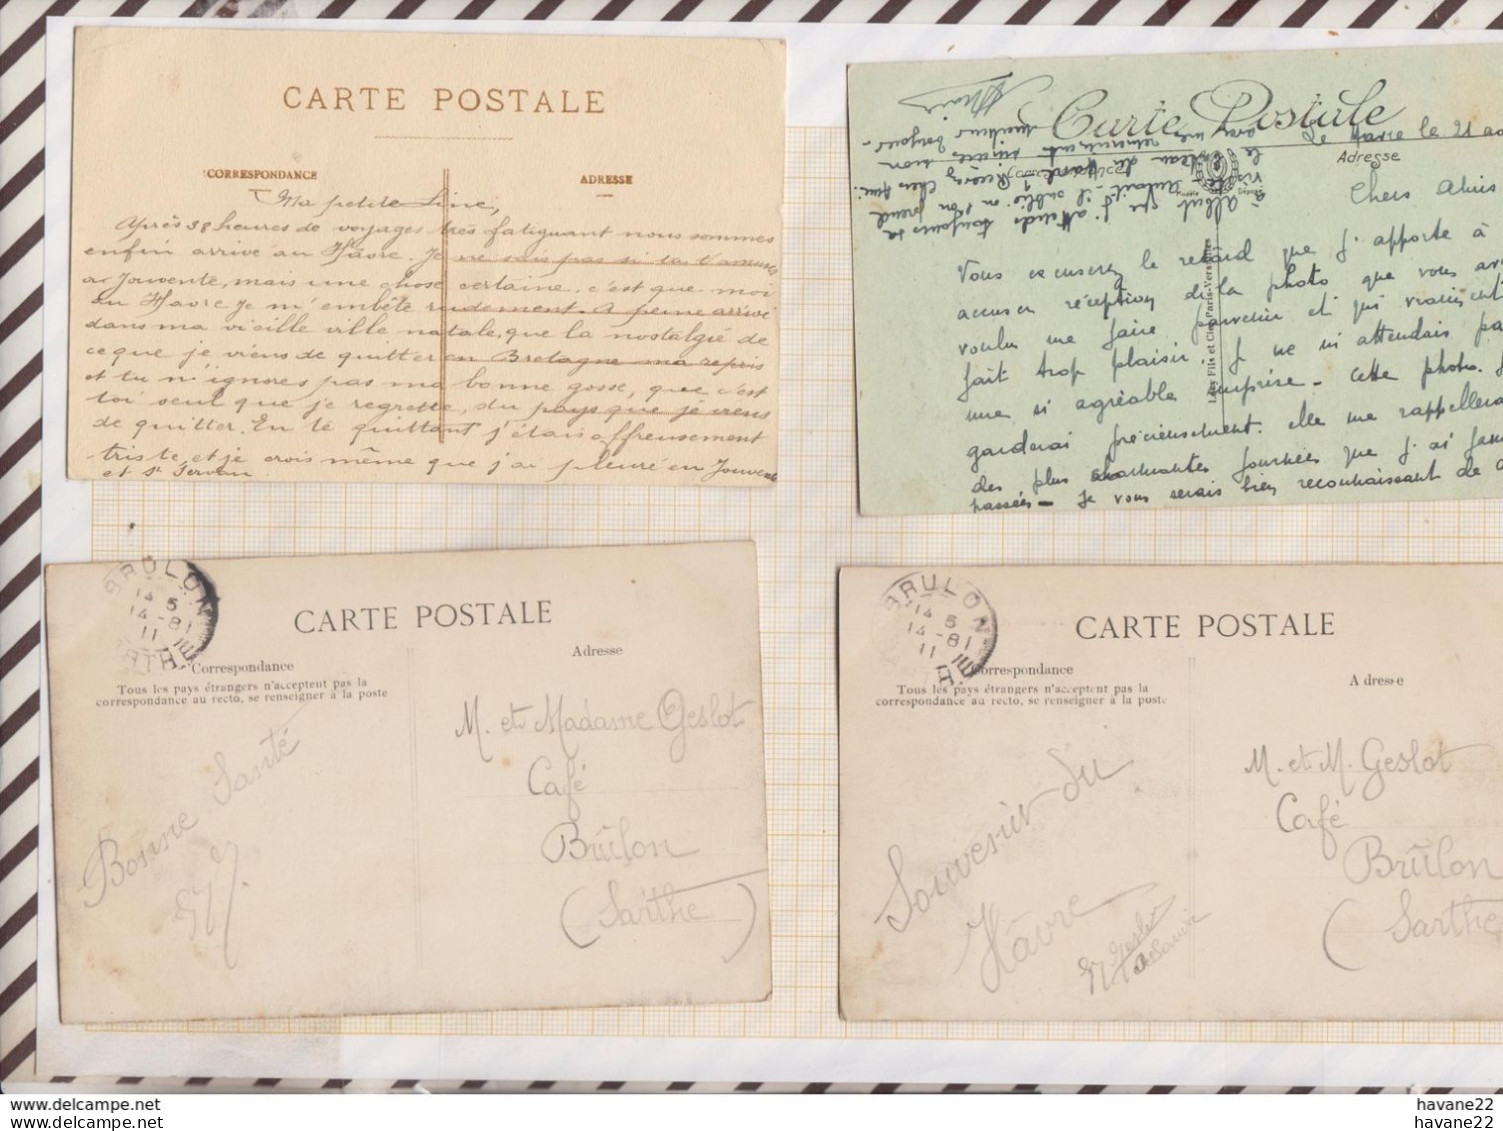 CARTE POSTALE
CORRESPONDANCE
ADRESSE
Ma petite Line,
Après 38 heures de voyages très fatiguant nous sommes
enfin arrivé au Hâvre. Je ne sais pas si tu t'amuses
à Jouvente, mais une chose certaine, c'est que moi
au Havre je m'embête rudement. A peine arrivé
dans ma vieille ville natale, que la nostalgie de
ce que je viens de quitter en Bretagne ma repris
et tu n'ignores pas ma bonne gosse, que c'est
toi seul que je regrette, du pays que je viens
de quitter. En te quittant j'étais affreusement
triste, et je crois même que j'ai pleuré en Jouvente
et St Servan
Carte Postale
Le Havre le 21 ao
Adresse
Chers Amis
Vous excuserez le retard que j'apporte à
accuser réception de la photo que vous av
voulu me faire parvenir et qui vraiment
fait trop plaisir. Je ne m'attendais pa
une si agréable surprise - cette photo. J
garderai précieusement. elle me rappellera
des plus charmantes journées que j'ai jam
passées - Je vous serais bien reconnaissant de
à Albert que j'attends toujours sa
visite. Autant - il oublié
Lévy Fils et Cie, Paris-Versailles
BRULON
14 5
14 - 8
11
SARTHE
CARTE POSTALE
Correspondance
Adresse
Tous les pays étrangers n'acceptent pas la
correspondance au recto, se renseigner à la poste
Bonne Santé
M. et Madame Geslot
Café
Brûlon
(Sarthe)
BRULON
14 5
14 - 8
11
CARTE POSTALE
Correspondance
Adresse
Tous les pays étrangers n'acceptent pas la
correspondance au recto, se renseigner à la poste
Souvenir du
Hâvre
Geslot
M. et M. Geslot
Café
Brûlon
(Sarthe
delcampe.net
havane22
delcampe.net
havane22